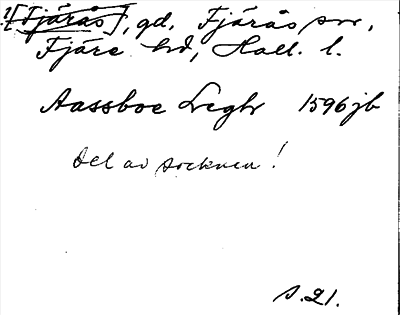 ![Fjärås], gd. Fjärås sn,
Fjäre hd, Hall. l.
Aassboe Leghr 1596 jb
Del av socknen!
s. 21.